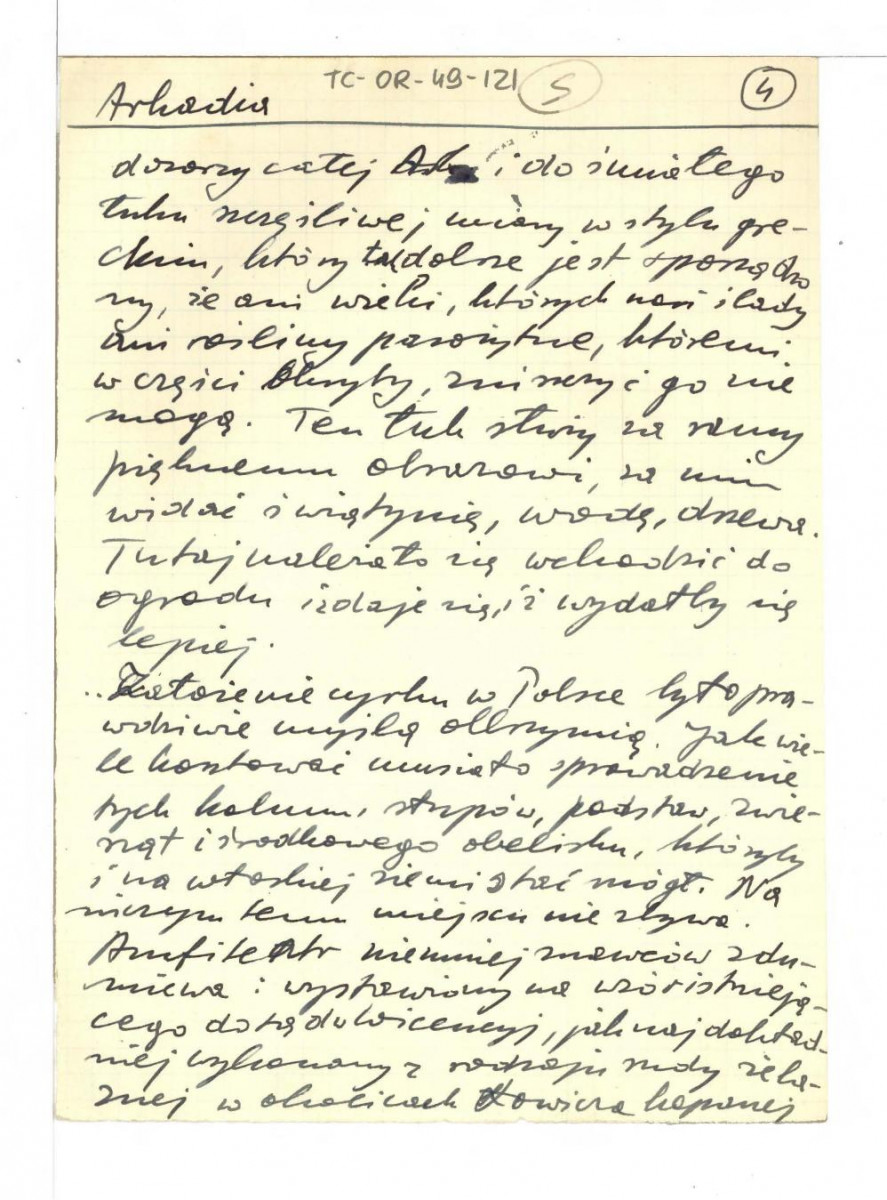 TC-OR-49-121 5 4
Arkadia
dozorzy całej Ark i do śmiałego
łuku szczęśliwej miary w stylu gre-
ckim, który tak dobrze jest sporządzo
ny, że ani wieki, których nosi ślady
ani rośliny pasożytne, któremi
w części okryty, zniszczyć go nie
mogą. Ten łuk służy za ramy
pięknemu obrazowi, za nim
widać świątynię, wodę, drzewa.
Tutaj należało się wchodzić do
ogrodu i zdaje się, iż wydałby się
lepiej.
..Założenie cyrku w Polsce było pra-
wdziwie myślą olbrzymią. Jak wie-
le kosztować musiało sprowadzenie
tych kolumn, słupów, podstaw, zwie-
rząt i środkowego obelisku, któryby
i na włoskiej ziemi stać mógł. Na
niczym temu miejscu nie zbywa.
Amfiteatr niemniej znawców zdu-
miewa i wystawiony na wzór istnieją-
cego dotąd w Wicencyj, jak najdokład-
niej wykonany z rodzaju rudy żela-
znej w okolicach Łowicza kopanej